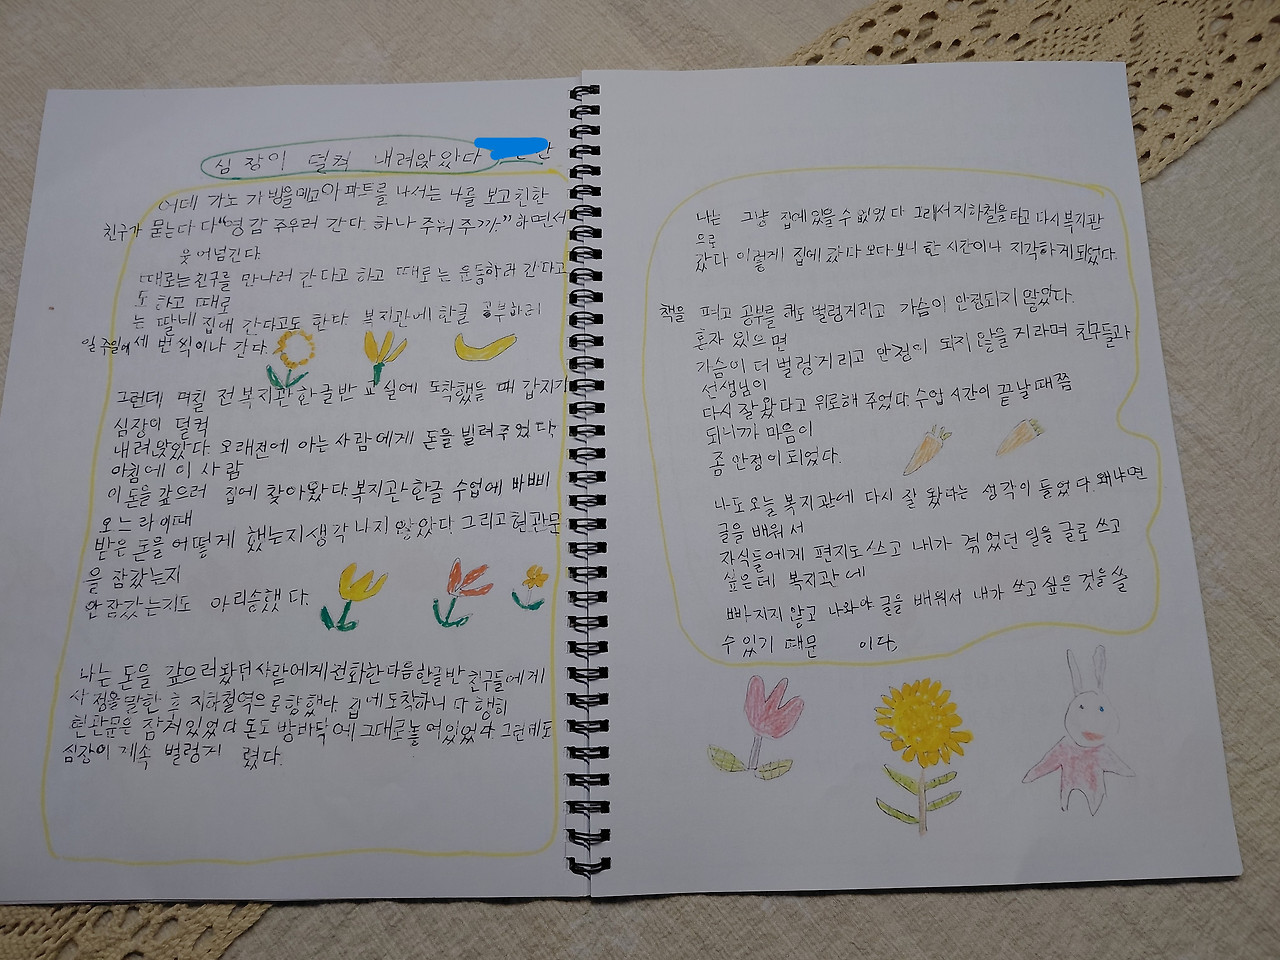 심장이 덜컥 내려앉았다
어데 가노 가방을메고아파트를 나서는 나를 보고친한
친구가 묻는다 다"영감 주우러 간다. 하나 주워 주까." 하면서
웃어넘긴다.
때로는친구를 만나러 간다고 하고 때로는 운동하러 간다고
도 하고 때로
는 딸네 집애 간다고도 한다. 복지관에 한글 공부하러
일주일에 세 번 씩이나 간다.
그런데 며칠 전 복지관 한글반 교실에 도착했을 때 갑지가
심장이 덜컥
내려앉았다. 오래전에 아는 사람에게 돈을 빌려주었다
아침에 이 사람
이돈을 갚으러 집에 찾아왔다.복지관 한글 수업에 바삐
오느라이때
받은 돈을 어떻게 했는지생각나지 않았다. 그리고현관문
을 잠갔는지
안잠갔는지도 아리송했다.
나는 돈을 갚으러왔던사람에게전화한다음한글반 친구들에게
사정을 말한 후 지하철역으로향했다. 집에도착하니 다행히
현관문은 잠겨있었다.돈도 방바닥에 그대로놓여있었다. 그런데도
심장이 계속 벌렁거 렸다.
나는 그냥 집에있을 수 없었다 그래서지하철을타고 다시복지관
으로
갔다 이렇게 집에 갔다 오다 보니 한 시간이나 지각하게되었다.
책을 펴고 공부를 해도 벌렁거리고 가슴이 안정되지 않았다.
혼자 있으면
가슴이 더 벌렁거리고 안정이 되지 않을 거라며 친구들과
선생님이
다시 잘 왔다고 위로해 주었다. 수업 시간이 끝날때쯤
되니까 마음이
좀 안정이되었다.
나도 오늘 복지관에 다시 잘 왔다는 생각이 들었다. 왜냐면
글을 배워서
자식들에게 편지도 쓰고 내가 겪었던 일을 글로 쓰고
싶은데 복지관에
빠지지 않고 나와야 글을 배워서 내가 쓰고 싶은 것을 쓸
수있기 때문 이다